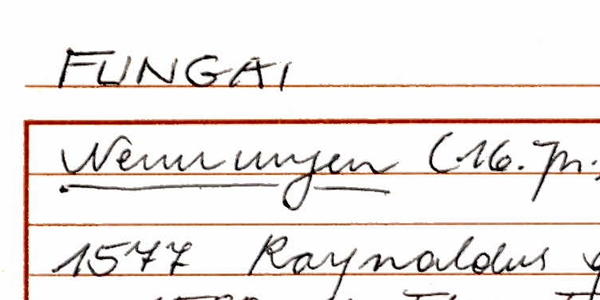 FUNGAI
Nennungen (16. Jh.
1577 Raynaldus